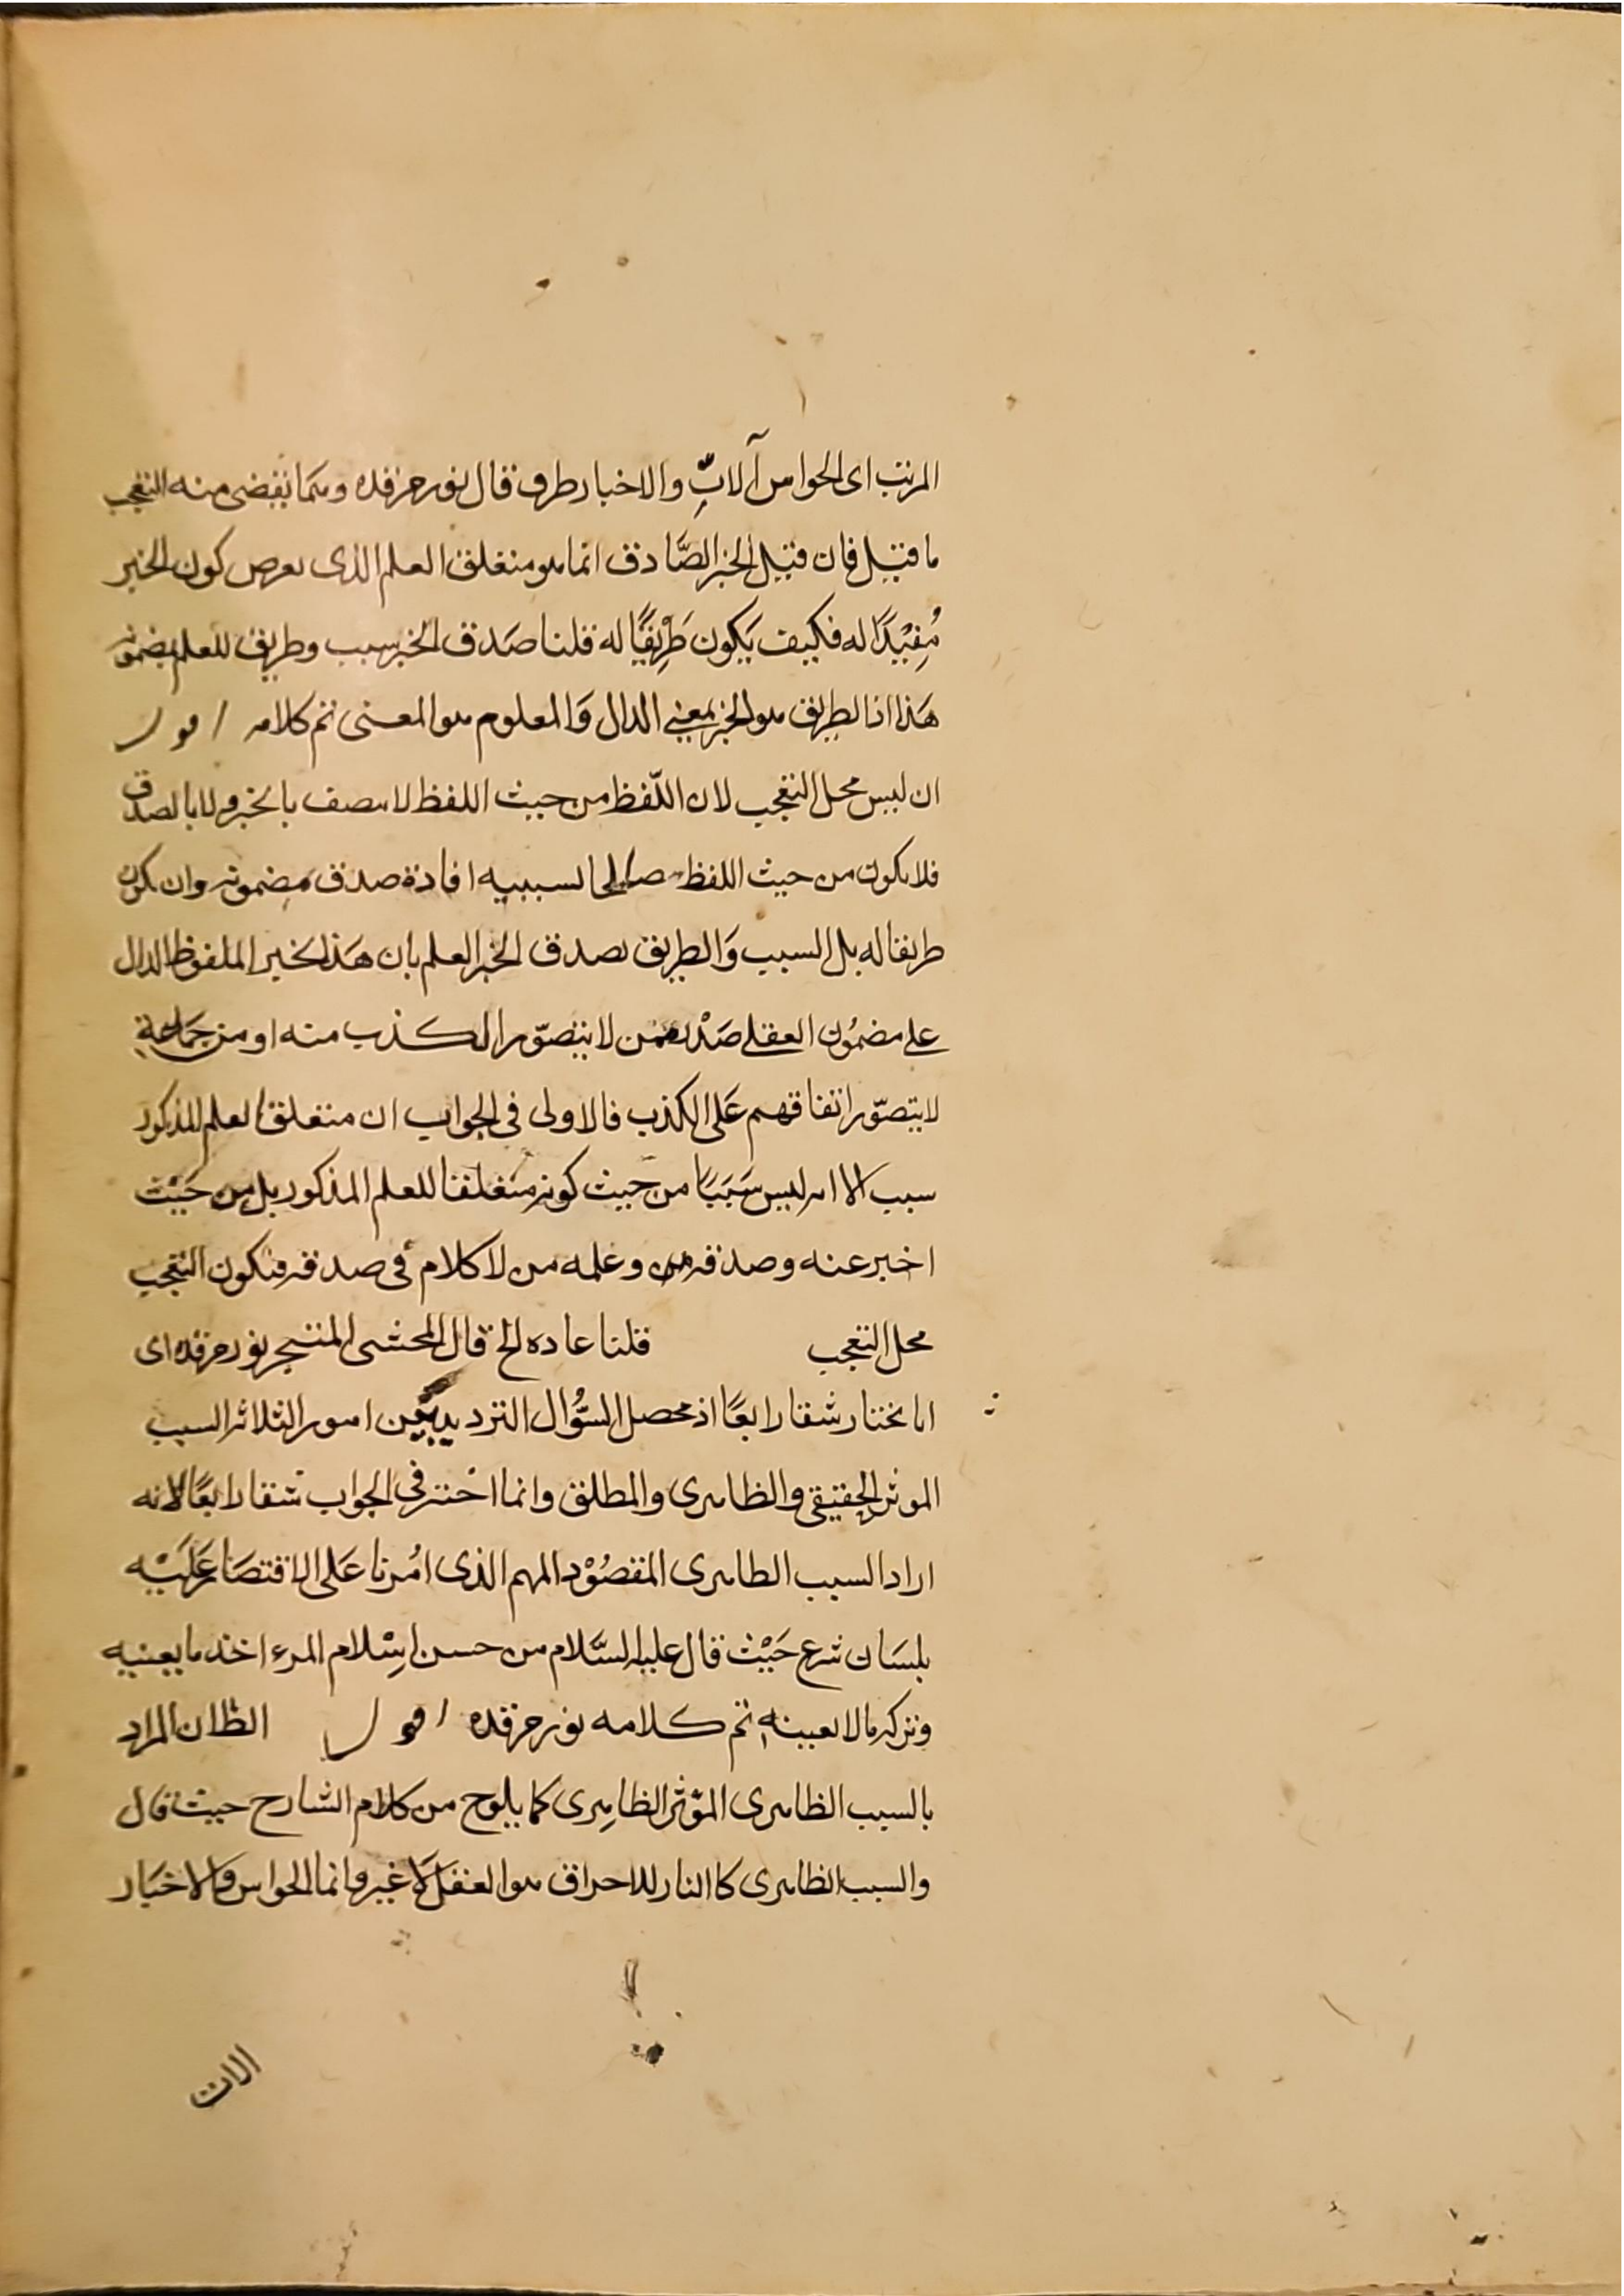 المرتب اى الحواس آلاتٌ والاخبار طرف قال نور مرقده ومما يقضى منه التعجب
ما قيل فان قيل الخبر الصَّادق انما هو متعلق العلم الذى يعرض كون الخبر
مُفِيْدًا له فكيف يَكون طَرِيْقًا له قلنا صَدق الخبر سبب وطريق للعلم بضمونه
هَذا اذا لطريق هو الخبر بمعنى الدال وَالمعلوم هو المعنى تم كلامه اقول
ان ليس محل التعجب لان اللّفظ من حيث اللفظ لا يتصف بالخبر ولا بالصدق
فلا يكون من حيث اللفظ صالحا لسببيه افادة صدق مضمونه وان يكون
طريقا له بل السبب وَالطريق لصدق الخبر العلم بان هَذا لخبر الملفوظ الدال
على مضمُون العقلى صَدْر ممن لا يتصوّر الكذب منه او من جَماعةٍ
لا يتصوّر اتفاقهم عَلى الكذب فالاولى فى الجواب ان متعلق العلم المذكور
سبب الا انه ليس سَبَبًا من حيث كونه متعلقا للعلم المذكور بل من حَيْث
اخبر عنه وصدقه من وعلمه من لا كلام فى صدقه فيكون التعجب
محل التعجب قلنا عاده الخ قال المحشى المتبحر نور مرقده اى
انا نختار شقا رابعًا اذ محصل السُّؤال الترديد بين امور الثلاثه السبب
الموثر الحقيقى والظاهرى والمطلق وانما اخْتر فى الجواب شقا رابعًا لانه
اراد السبب الظاهرى المقصُوْد المهم الذى امُرنا عَلى الاقتصَار عَلَيْه
بلسَان شرع حَيْث قال عليه السَّلام من حسن اِسْلام المرء اخذ ما يعنيه
وتركه ما لا يعينه تم كلامه نور مرقده اقول الظ ان المراد
بالسبب الظاهرى المؤثر الظاهِرى كما يلوح من كلام الشارح حيث قال
والسبب الظاهرى كالنار للاحراق هو العقل لَا غير وانما الحواس والاخبَار
الات